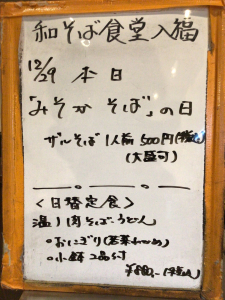 和そば食堂入福
12/29 本日
「みそかそば」の日
ザルそば 1人前 500円(税込)
(大盛可)
<日替定食>
温1肉そば・うどん
・おにぎり(若菜わかめ)
・小鉢2品付
¥880.-(税込)